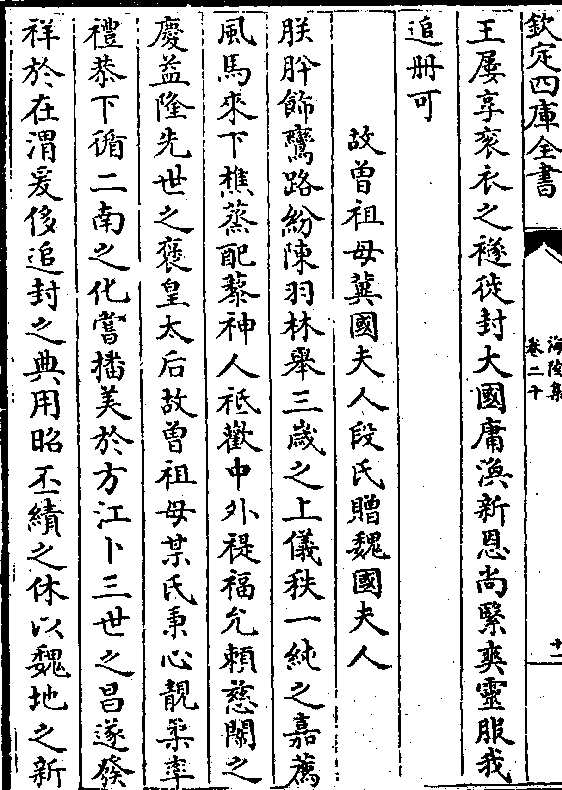 欽定四庫全書
海陵集
卷二十
十一
王屡享衮衣之襚徙封大國庸渙新恩尚緊爽靈服我
追册可
故曾祖母冀國夫人段氏贈魏國夫人
朕肸飾鸞路紛陳羽林舉三歲之上儀秩一純之嘉薦
風馬來下樵蒸配藜神人祗歡中外禔福允賴慈闈之
慶益隆先世之褒皇太后故曾祖母某氏秉心靚榘率
禮恭下循二南之化嘗播美於方江卜三世之昌遂發
祥於在渭爰侈追封之典用昭丕績之休以魏地之新